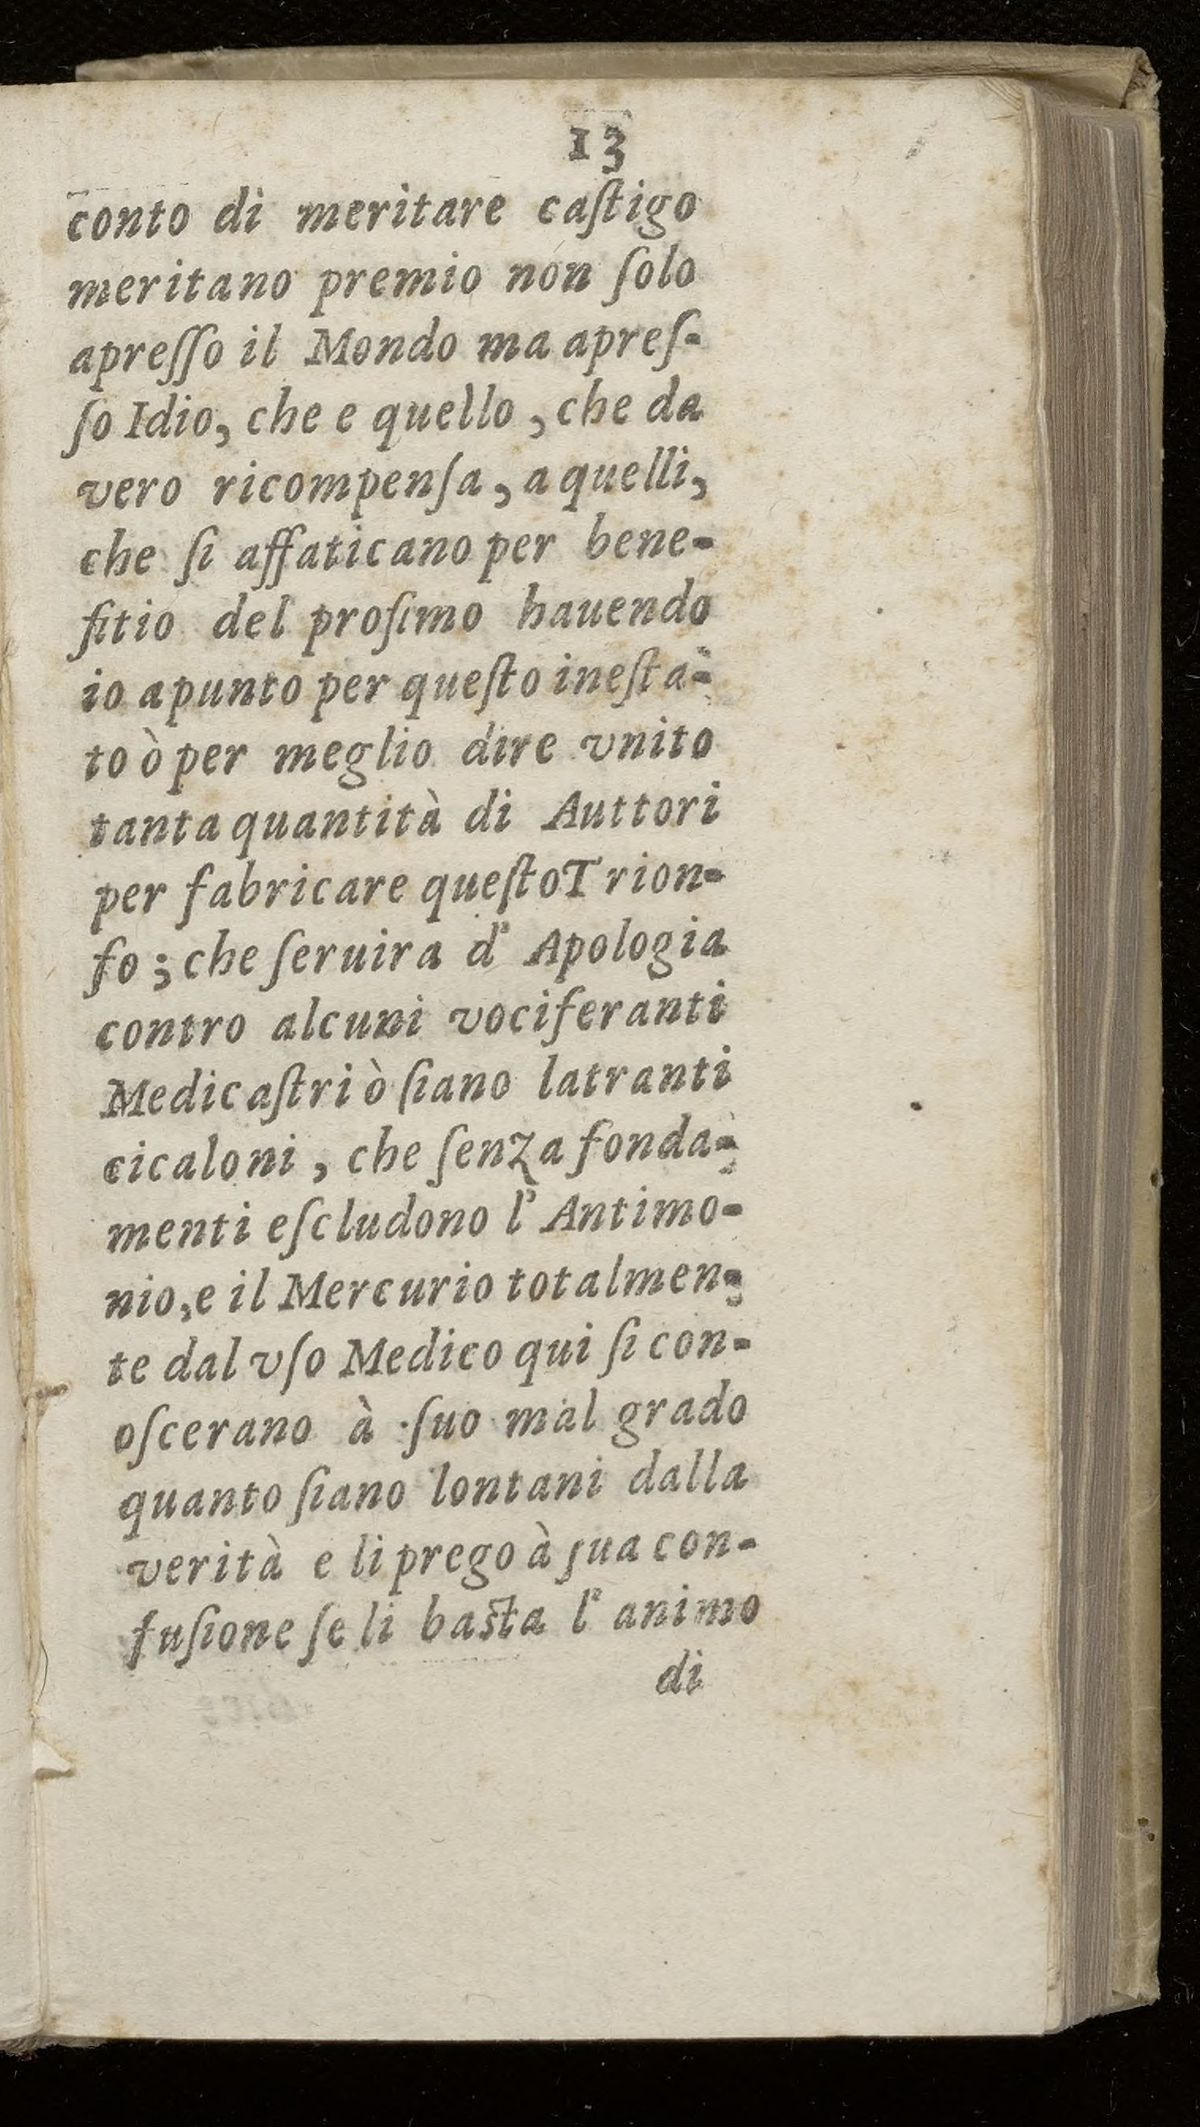 13
conto di meritare caſtigo
meritano premio non ſolo
apreſſo il Mondo ma apreſ-
ſo Idio, che e quello, che da
vero ricompenſa, a quelli,
che ſi affaticano per bene-
fitio del proſimo hauendo
io apunto per queſto ineſta-
to ò per meglio dire vnito
tanta quantità di Auttori
per fabricare queſto Trion-
fo; che ſeruira d' Apologia
contro alcuni vociferanti
Medicaſtri ò ſiano latranti
cicaloni, che ſenza fonda-
menti eſcludono l' Antimo-
nio, e il Mercurio totalmen-
te dal vſo Medico qui ſi con-
oſcerano à ſuo mal grado
quanto ſiano lontani dalla
verità e li prego à ſua con-
fuſione ſe li baſta l' animo
di